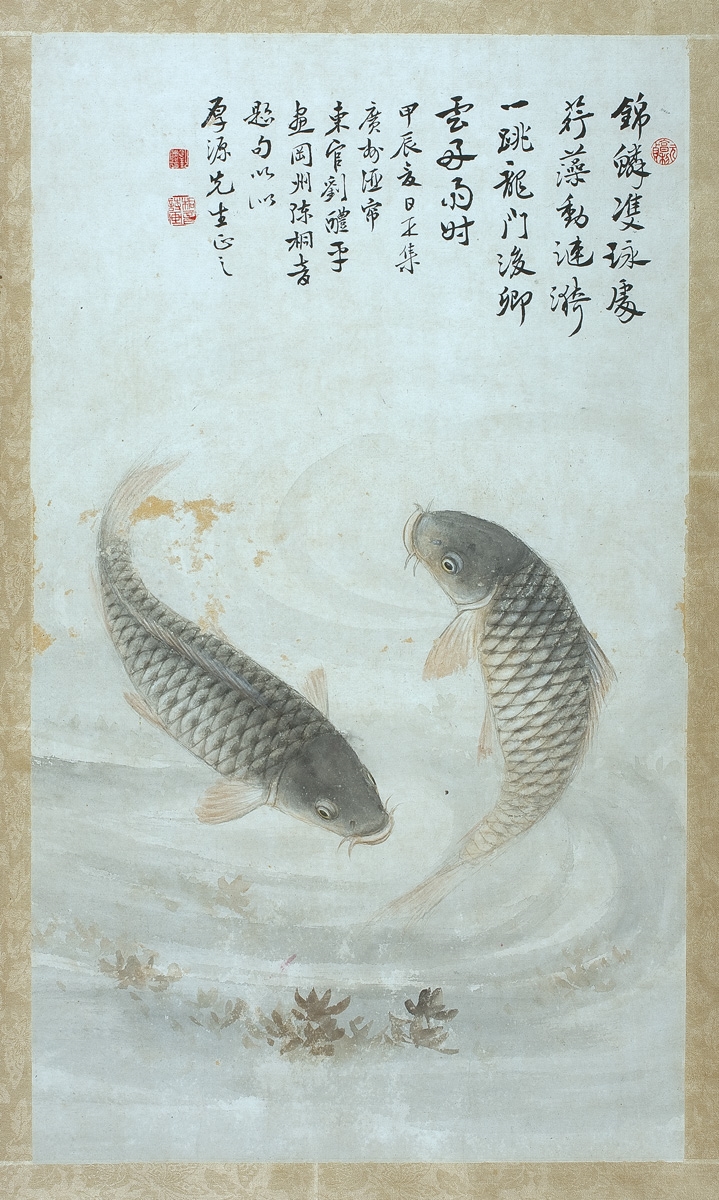 錦鱗雙咏處
荇藻動漣漪
一跳龍門後卿
雲子雨时
甲辰夏日王集
廣州酒帘
東官劉醴平
畫岡州陳桐音
題句以似
厚源先生正之